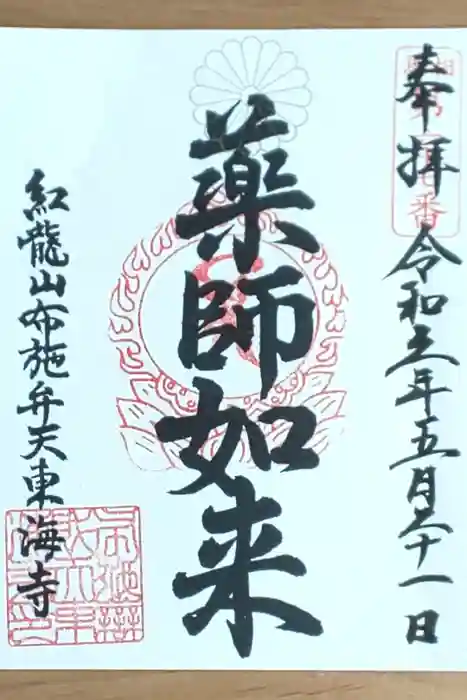 奉拝 令和元年五月十一日
薬師如来
紅龍山布施弁天東海寺